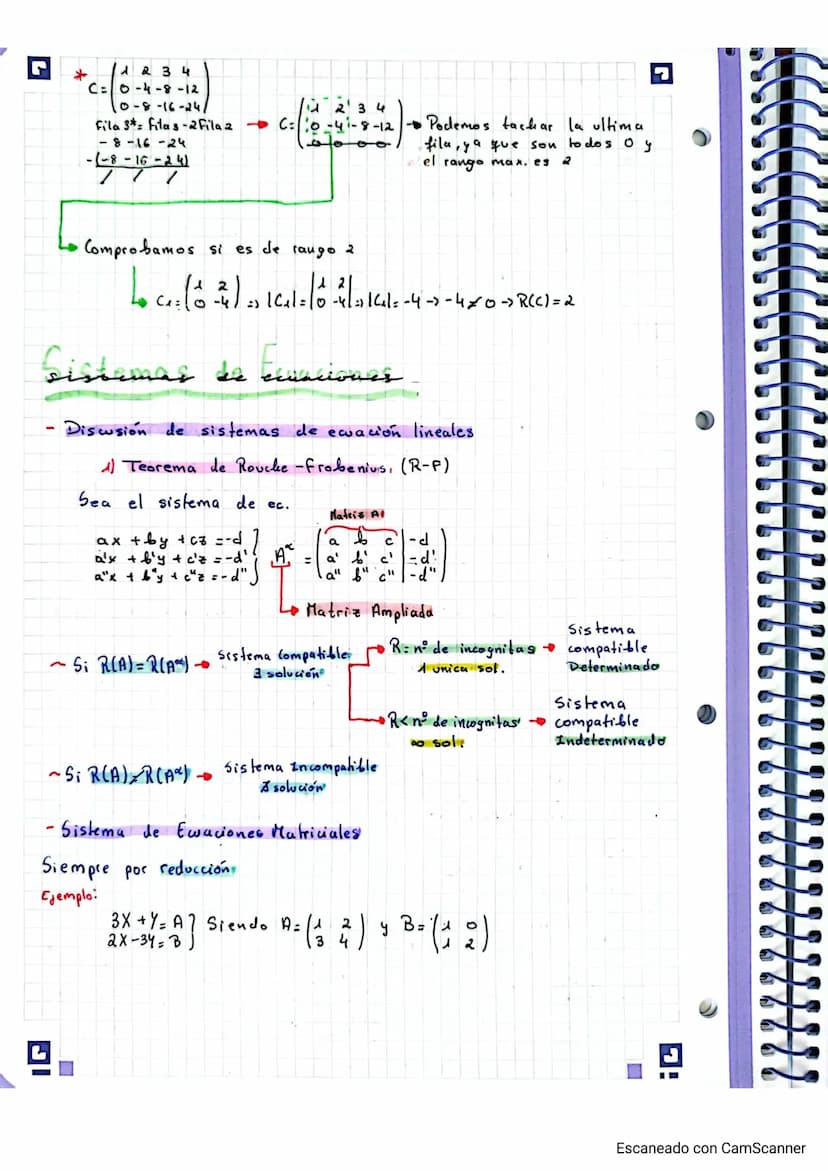 * C = (1 2 3 4
0 -4 -8 -12
0 -8 -16 -24)
Fila 3* = Fila 3 - 2 Fila 2 → C = (1 2 3 4
0 -4 -8 -12
0 0 0 0) → Podemos tachar la ultima
fila, ya que son todos 0 y
el rango max. es 2
- 8 -16 -24
-(-8 -16 -24)
/ / /
Comprobamos si es de rango 2
C₁ = (1 2
0 -4) => |C₁| = |1 2
0 -4| => |C₁| = -4 → -4 ≠ 0 → R(C) = 2
Sistemas de Ecuaciones
- Discusión de sistemas de ecuación lineales
1) Teorema de Rouche - Frobenius, (R-F)
Sea el sistema de ec.
Matriz A
ax + by + cz = -d
a'x + b'y + c'z = -d'
a''x + b''y + c''z = -d''
A* = (a b c | -d
a' b' c' | -d'
a'' b'' c'' | -d'')
Matriz Ampliada
~ Si R(A) = R(A*) → Sistema compatible
∃ solución
R = nº de incognitas → Sistema
compatible
Determinado
1 unica sol.
R < nº de incognitas → Sistema
compatible
Indeterminado
∞ sol.
~ Si R(A) ≠ R(A*) → Sistema Incompatible
∄ solución
- Sistema de Ecuaciones Matriciales
Siempre por reducción
Ejemplo:
3X + Y = A
2X - 3Y = B
Siendo A = (1 2
3 4) y B = (1 0
1 2)
Escaneado con CamScanner